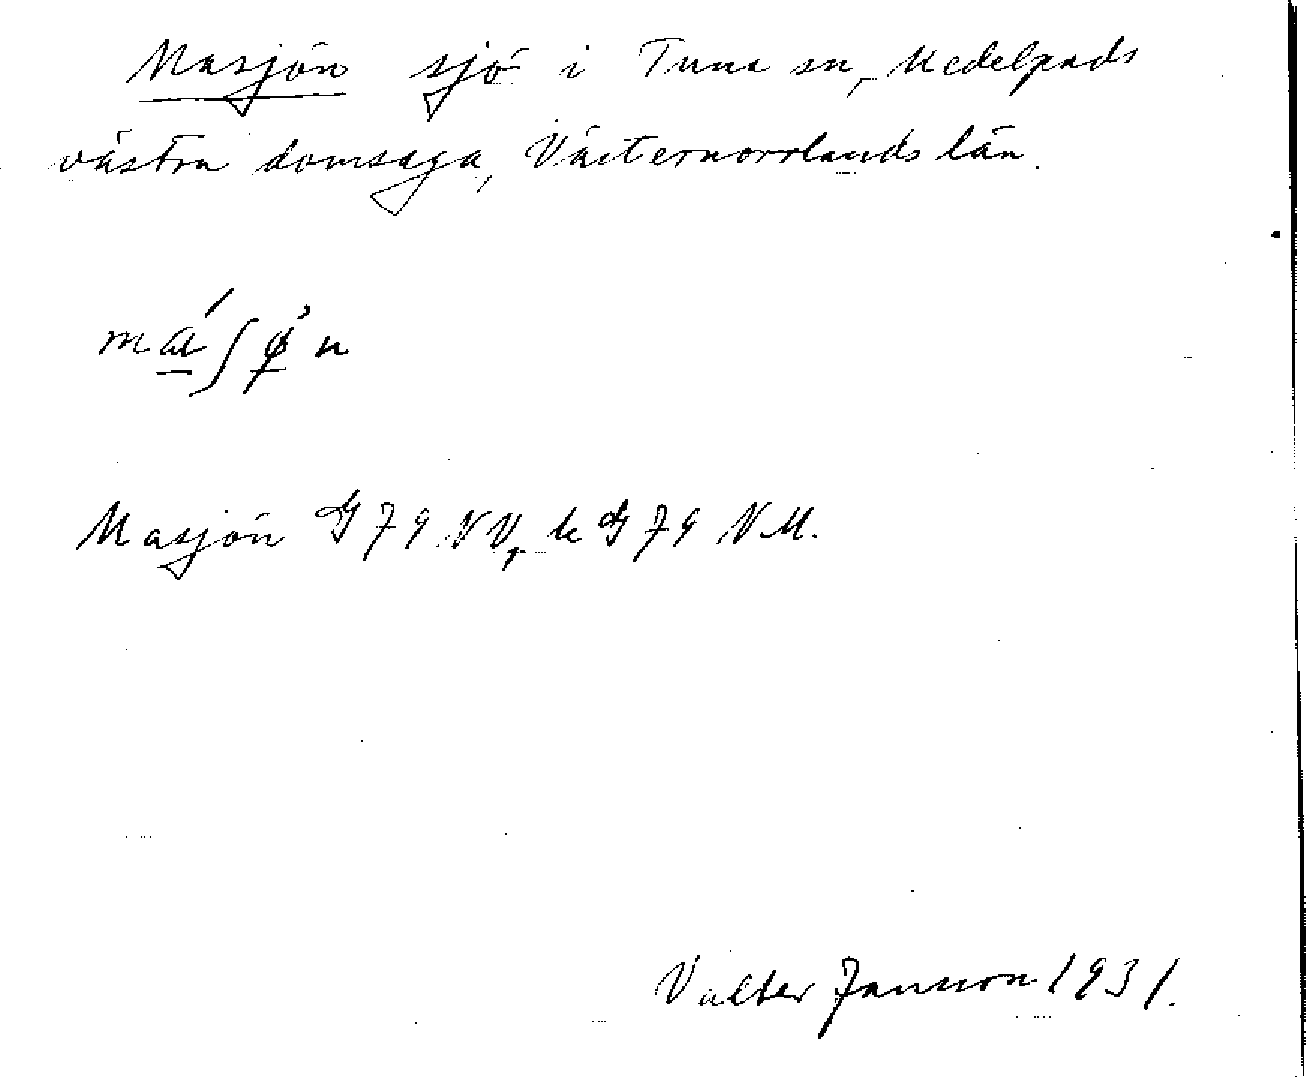 Masjön sjö i Tuna sn, Medelpads
västra domsaga, Västernorrlands län.
má̱ʃǿ̱n
Masjön G 79 NV, k G 79 NM.
Valter Jansson 1931.